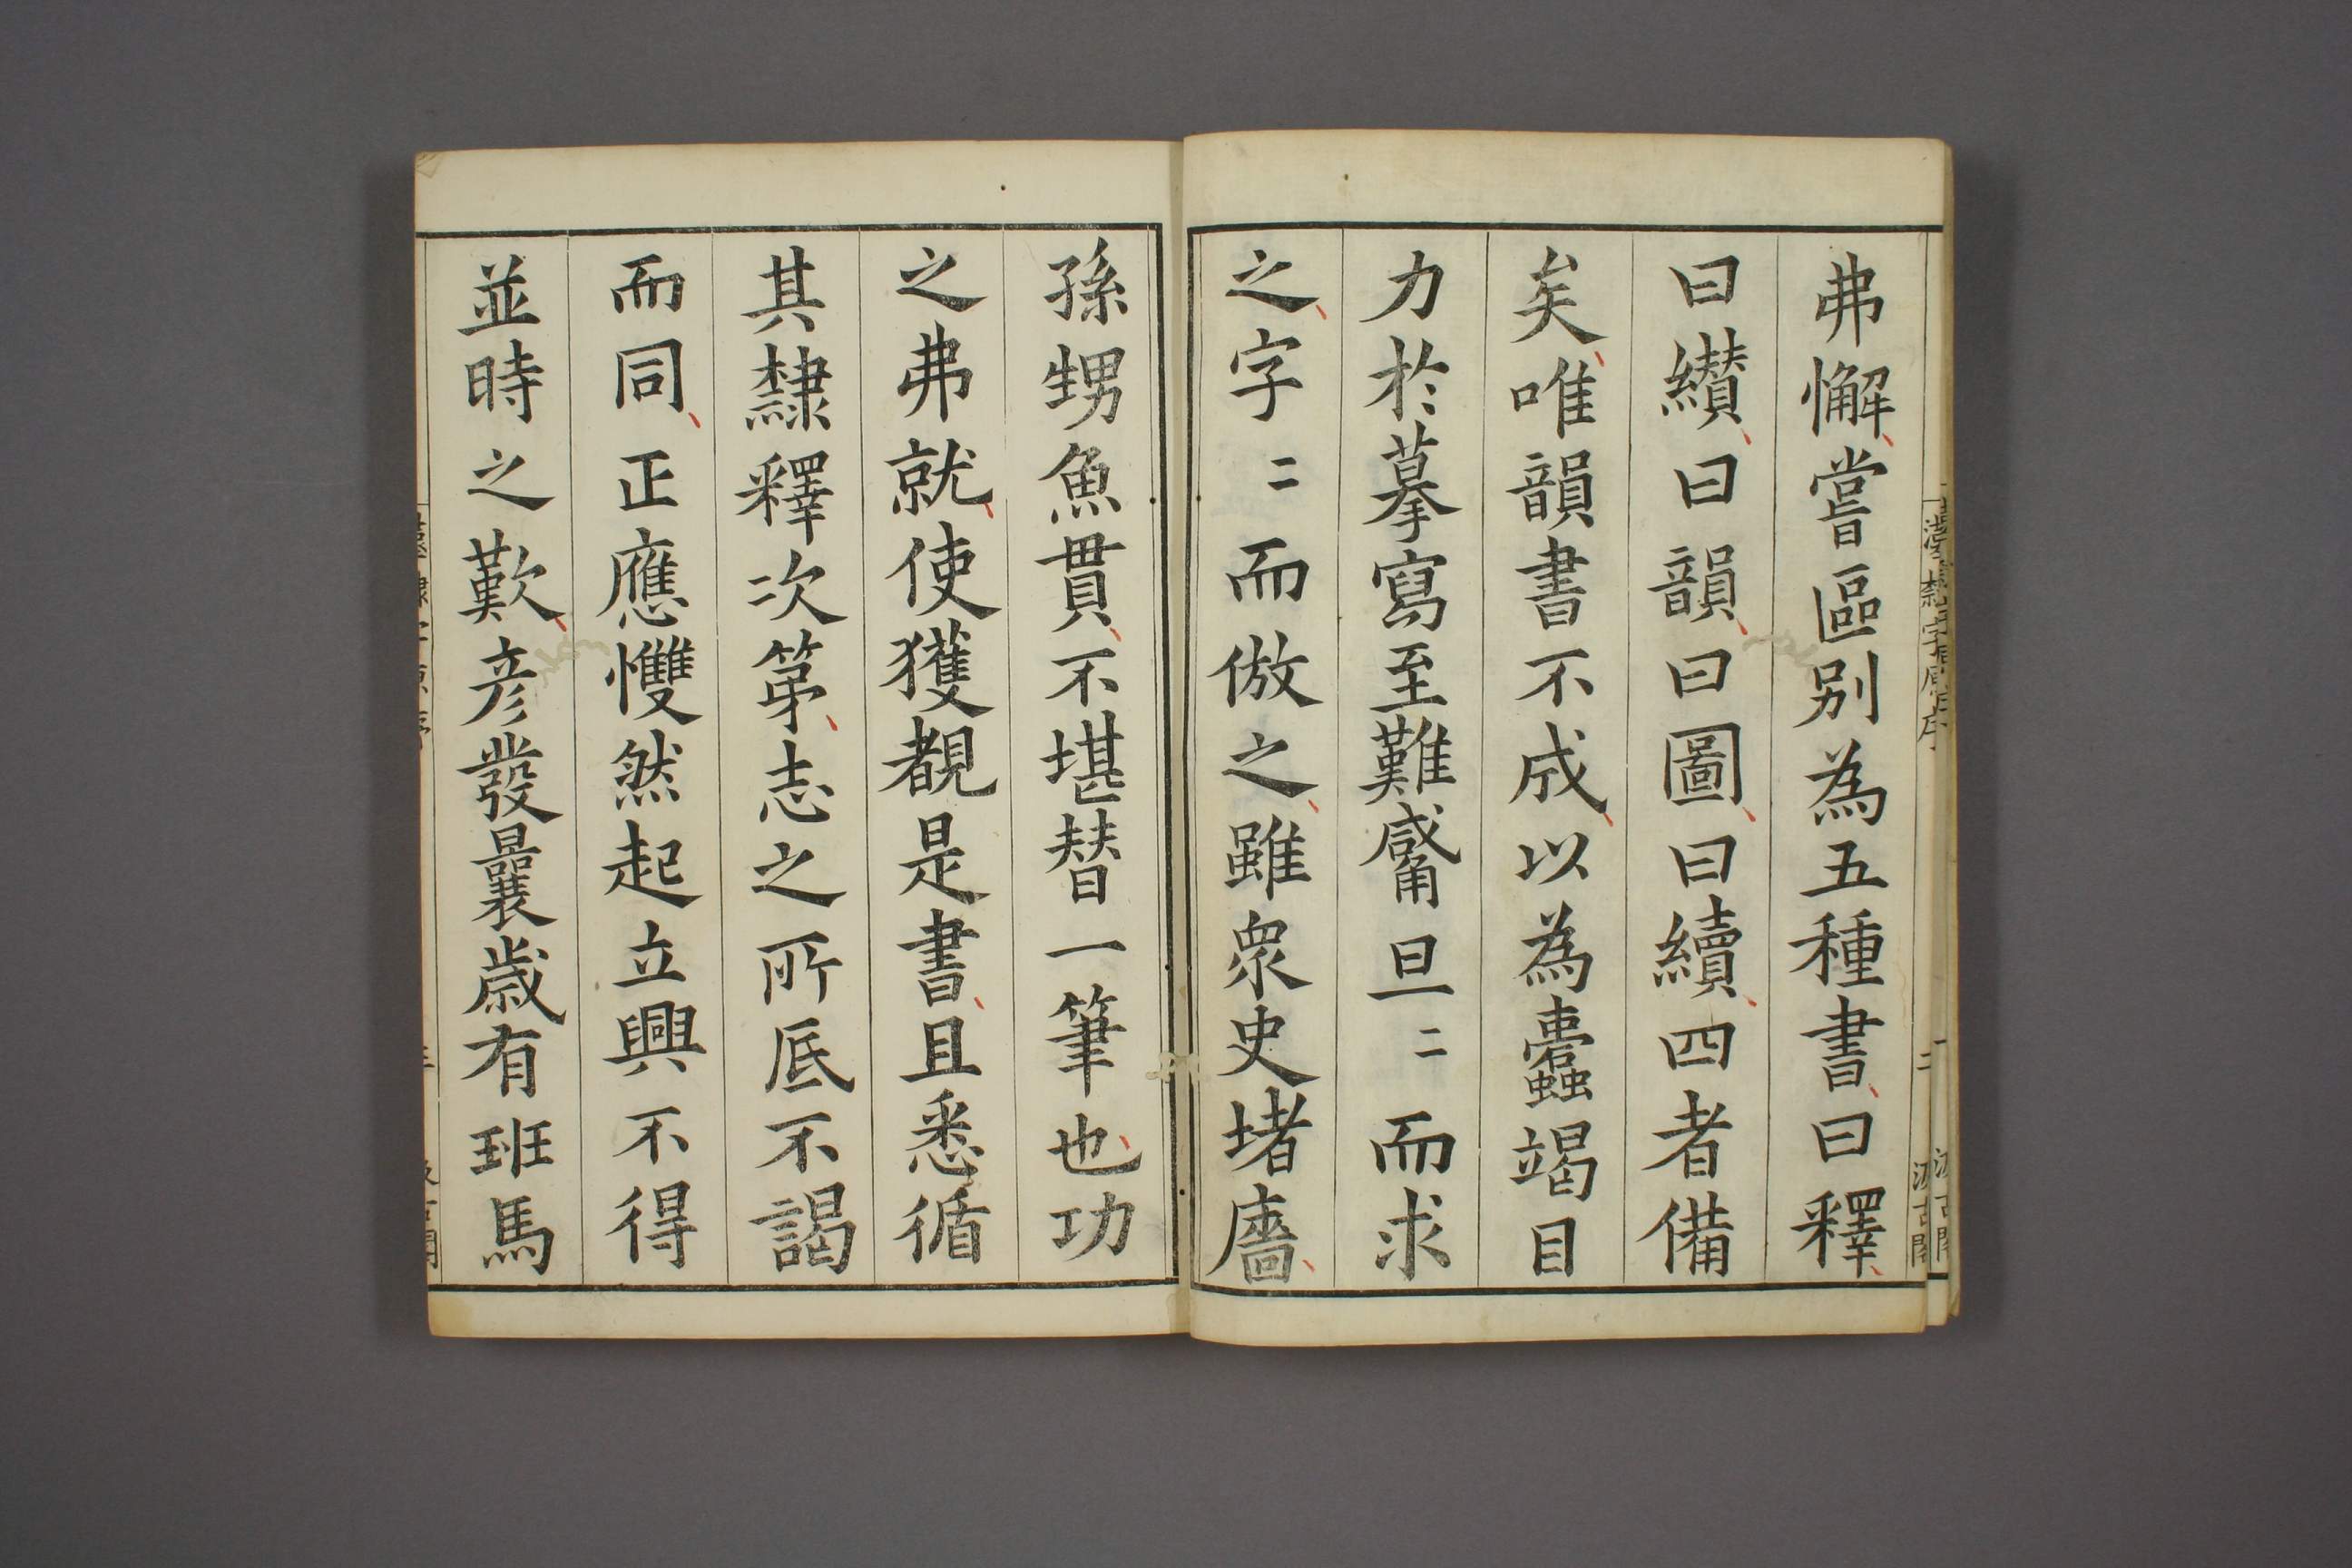 弗懈嘗區別為五種書曰釋
曰纘曰韻曰圖曰續四者備
矣唯韻書不成以為蠹竭目
力於摹寫至難觱旦二而求
之字二而倣之雖衆史堵廧
孫甥魚貫不堪替一筆也功
之弗就使獲覩是書且悉循
其隸釋次第志之所底不謁
而同正應戄然起立興不得
並時之歎彦發曩歲有班馬
漢隸字原序
二
汲古閣